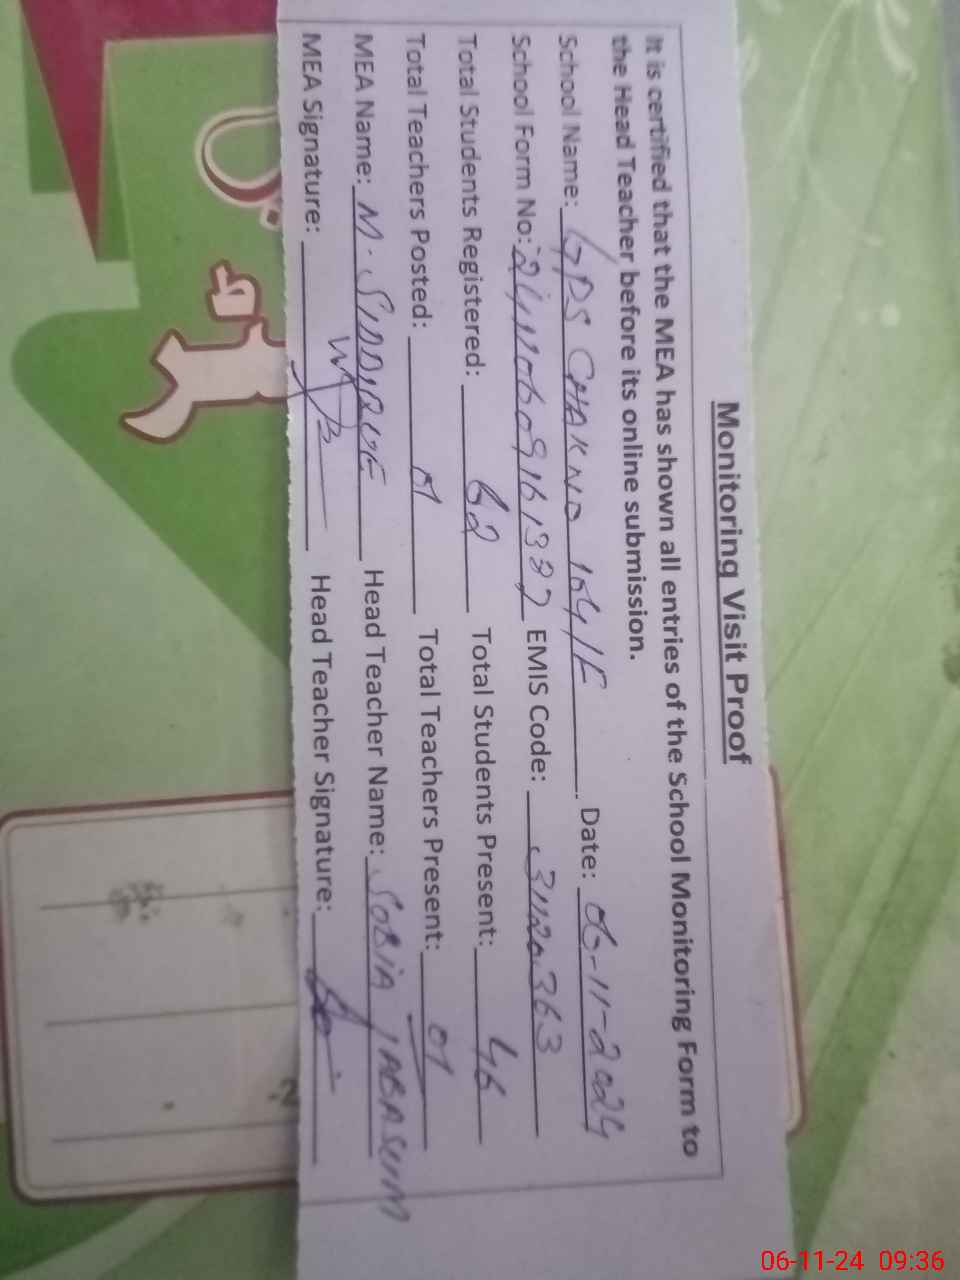 Monitoring Visit Proof
It is certified that the MEA has shown all entries of the School Monitoring Form to
the Head Teacher before its online submission.
School Name: GPS CHAK NO 164/E Date: 06-11-2024
School Form No: EMIS Code: 31120363
Total Students Registered: 62 Total Students Present: 46
Total Teachers Posted: 01 Total Teachers Present: 01
MEA Name: M. SIDDIQUE Head Teacher Name: SOBIA TABASUM
MEA Signature: Head Teacher Signature:
06-11-24 09:36